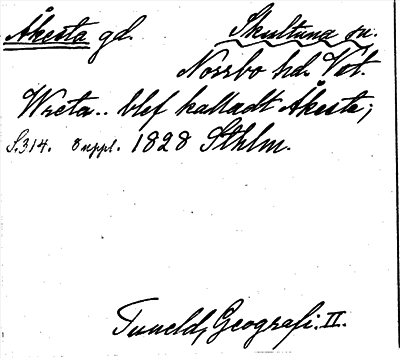 Åkesta gd. Skultuna sn.
Norrbo hd. Vstl.
Wreta.. blef kalladt Åkesta;
S. 314. 8 uppl. 1828 Sthlm.
Tuneld, Geografi. II.